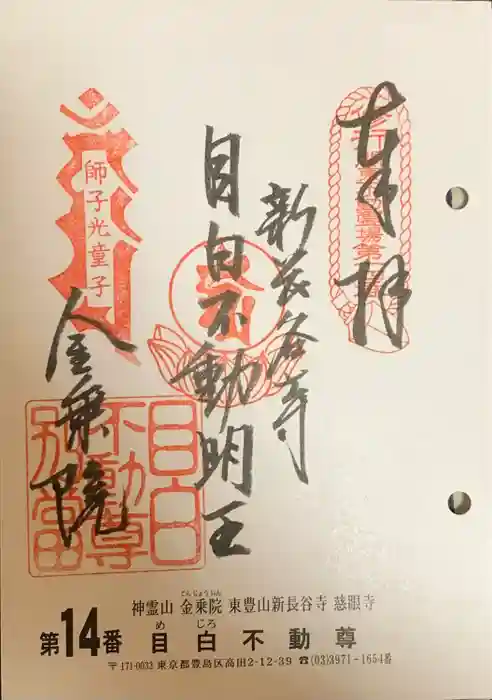 奉拝
新長谷寺
目白不動明王
師子光童子
金乗院
目白
不動尊
別当
こんじょういん
神霊山 金乗院 東豊山新長谷寺 慈眼寺
めじろ
第14番 目白不動尊
〒171-0033 東京都豊島区高田2-12-39 ☎(03)3971-1654番